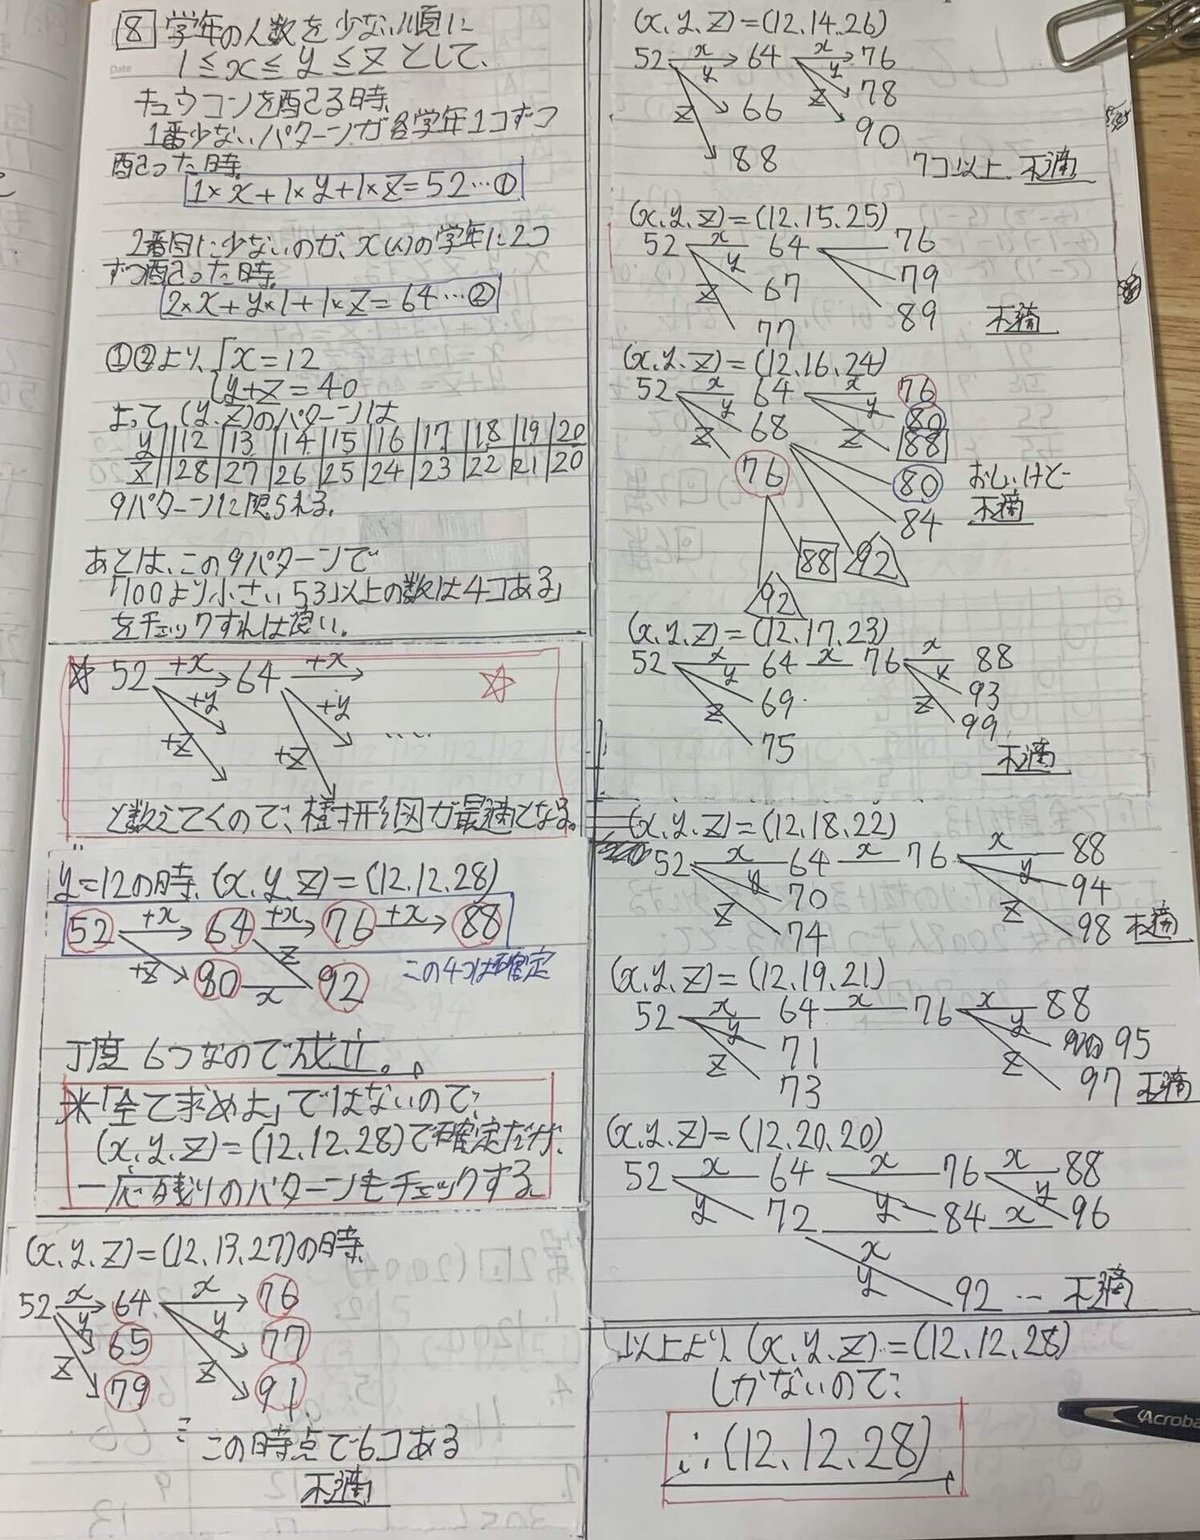 8 学年の人数を少ない順に
1≦x≦y≦zとして、
キュウコンを配る時、
1番少ないパターンが各学年1コずつ
配った時。
1×x+1×y+1×z=52…①
2番目に少ないのが、x(人)の学年に2コ
ずつ配った時。
2×x+y×1+1×z=64…②
①②より、{x=12
{y+z=40
よって、(y.z)のパターンは
y|12|13|14|15|16|17|18|19|20
z|28|27|26|25|24|23|22|21|20
9パターンに限られる。
あとは、この9パターンで
「100より小さい53以上の数は4コある」
をチェックすれば良い。
☆ 52 +x 64 +x ☆
+y +y
+z +z ……
と数えてくので、樹形図が最適となる。
y=12の時、(x.y.z)=(12.12.28)
52 +x 64 +x 76 +x 88
+z 80 x z 92 この4つは確定
丁度6つなので成立。
※「全て求めよ」ではないので、
(x.y.z)=(12.12.28)で確定だが、
一応残りのパターンもチェックする。
(x.y.z)=(12.13.27)の時、
52 x 64 x 76
y 65 y 77
z 79 z 91
この時点で6コある
不適
(x.y.z)=(12.14.26)
52 x 64 x 76
y 66 y 78
z 88 z 90
7コ以上、不適
(x.y.z)=(12.15.25)
52 x 64 76
y 67 79
z 77 89 不適
(x.y.z)=(12.16.24)
52 x 64 x 76
y 68 y 80
z 76 z 88
80 おしいけど
84 不適
88 92
92
(x.y.z)=(12.17.23)
52 x 64 x 76 x 88
y 69 y 93
z 75 z 99
不適
(x.y.z)=(12.18.22)
52 x 64 x 76 x 88
y 70 y 94
z 74 z 98 不適
(x.y.z)=(12.19.21)
52 x 64 x 76 x 88
y 71 y 95
z 73 z 97 不適
(x.y.z)=(12.20.20)
52 x 64 x 76 x 88
y 72 x y 84 x y 96
y 92 … 不適
以上より、(x.y.z)=(12.12.28)
しかないので、
∴(12.12.28)
Acroba